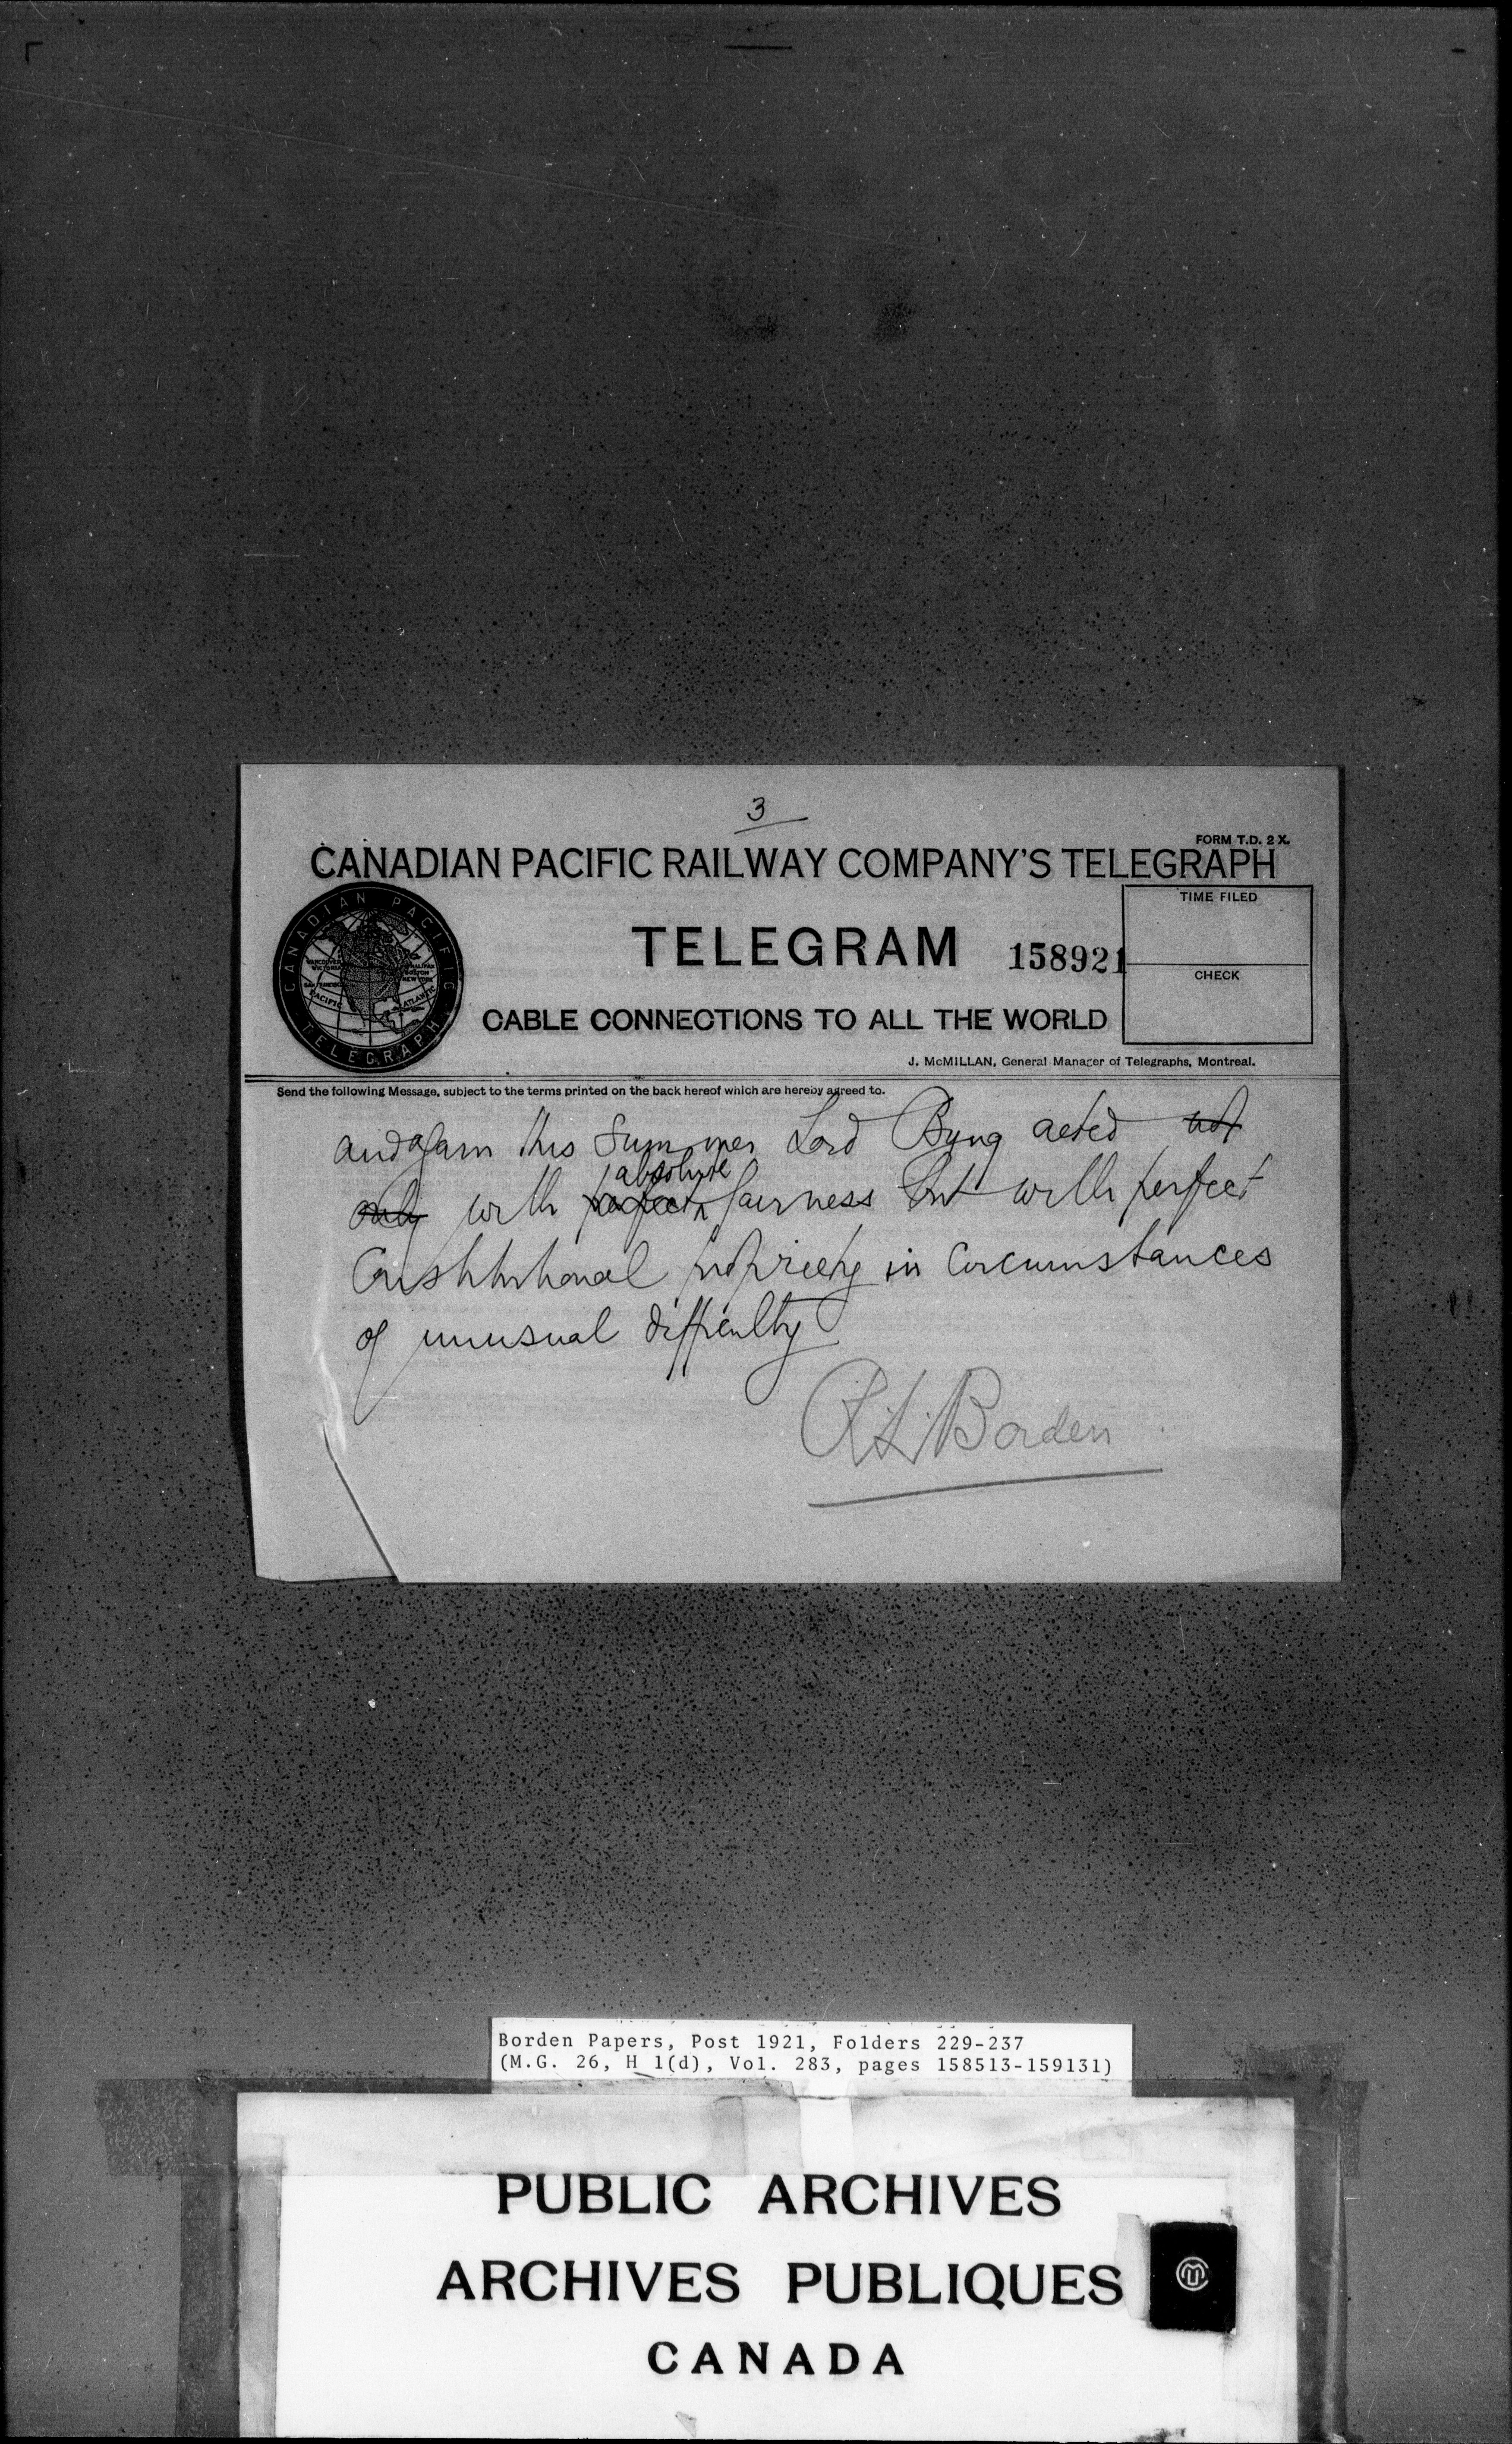 3
FORM T.D. 2 X.
CANADIAN PACIFIC RAILWAY COMPANY'S TELEGRAPH
CANADIAN PACIFIC TELEGRAPH
VANCOUVER
VICTORIA
HALIFAX
BOSTON
NEW YORK
PACIFIC
ATLANTIC
TELEGRAM 158921
TIME FILED
CHECK
CABLE CONNECTIONS TO ALL THE WORLD
J. McMILLAN, General Manager of Telegraphs, Montreal.
Send the following Message, subject to the terms printed on the back hereof which are hereby agreed to.
and again this Summer Lord Byng acted not
absolute
only with perfect fairness but with perfect
Constitutional propriety in circumstances
of unusual difficulty
R.L. Borden
Borden Papers, Post 1921, Folders 229-237
(M.G. 26, H 1(d), Vol. 283, pages 158513-159131)
PUBLIC ARCHIVES
ARCHIVES PUBLIQUES
CANADA